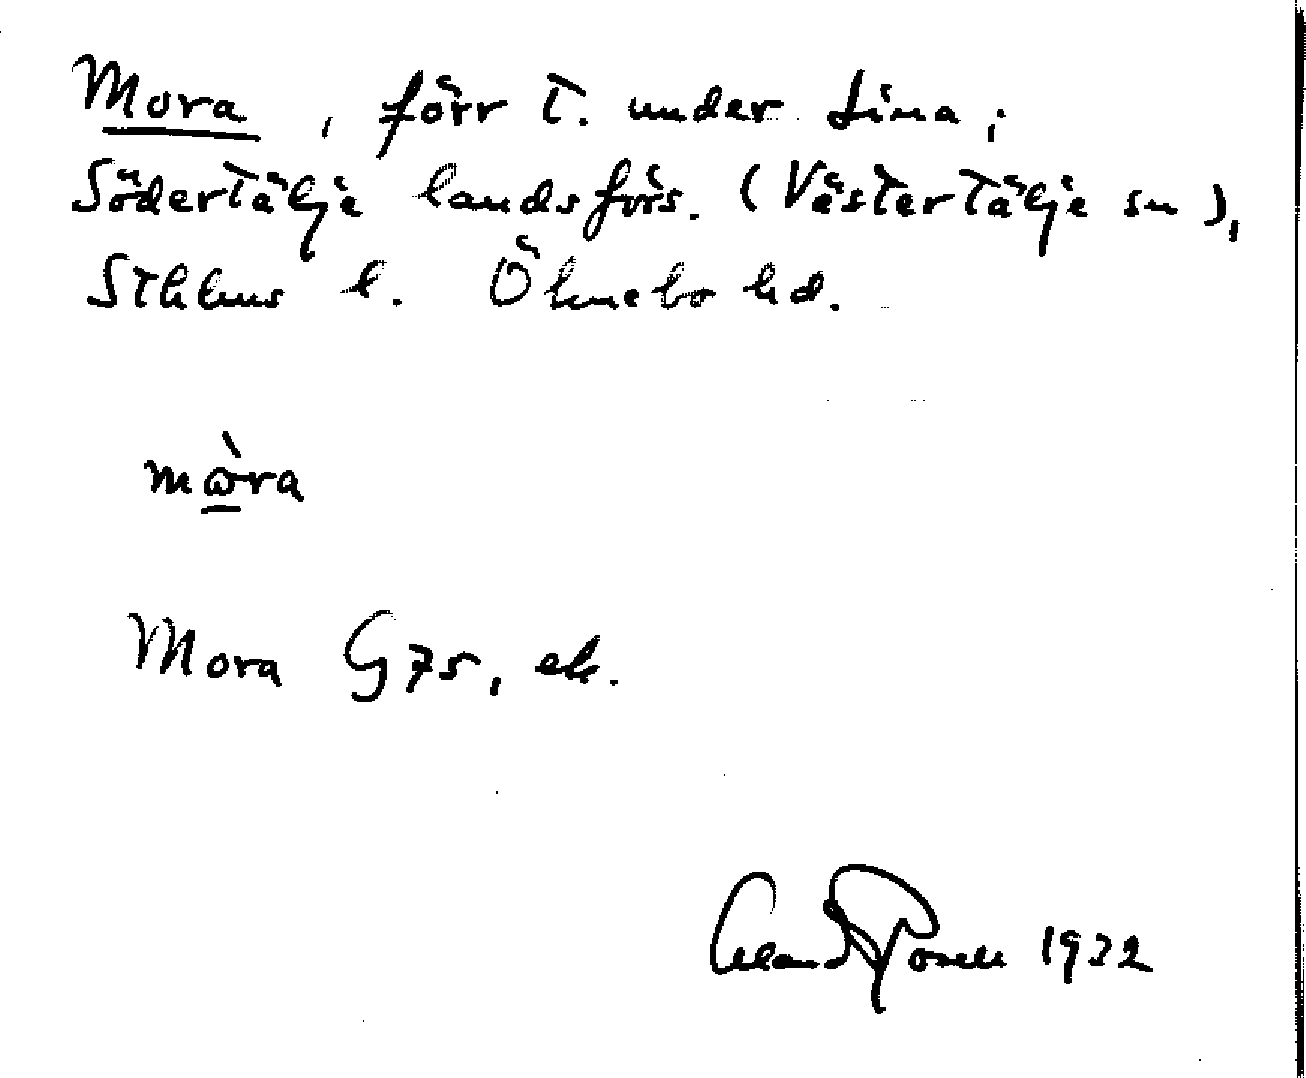 Mora, förr t. under Lina;
Södertälje landsförs. (Västertälje sn),
Sthlms l. Öknebo hd.
mὼ̲ra
Mora G 75, ek.
1932